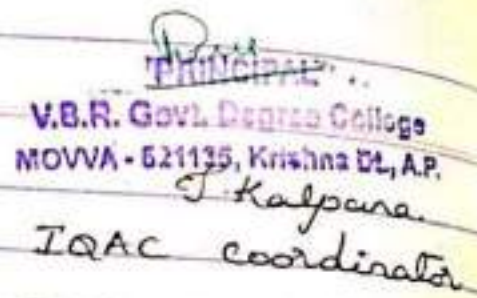 PRINCIPAL
V.B.R. Govt. Degree College
MOVVA - 521135, Krishna Dt., A.P.
T. Kalpana.
IQAC coordinator